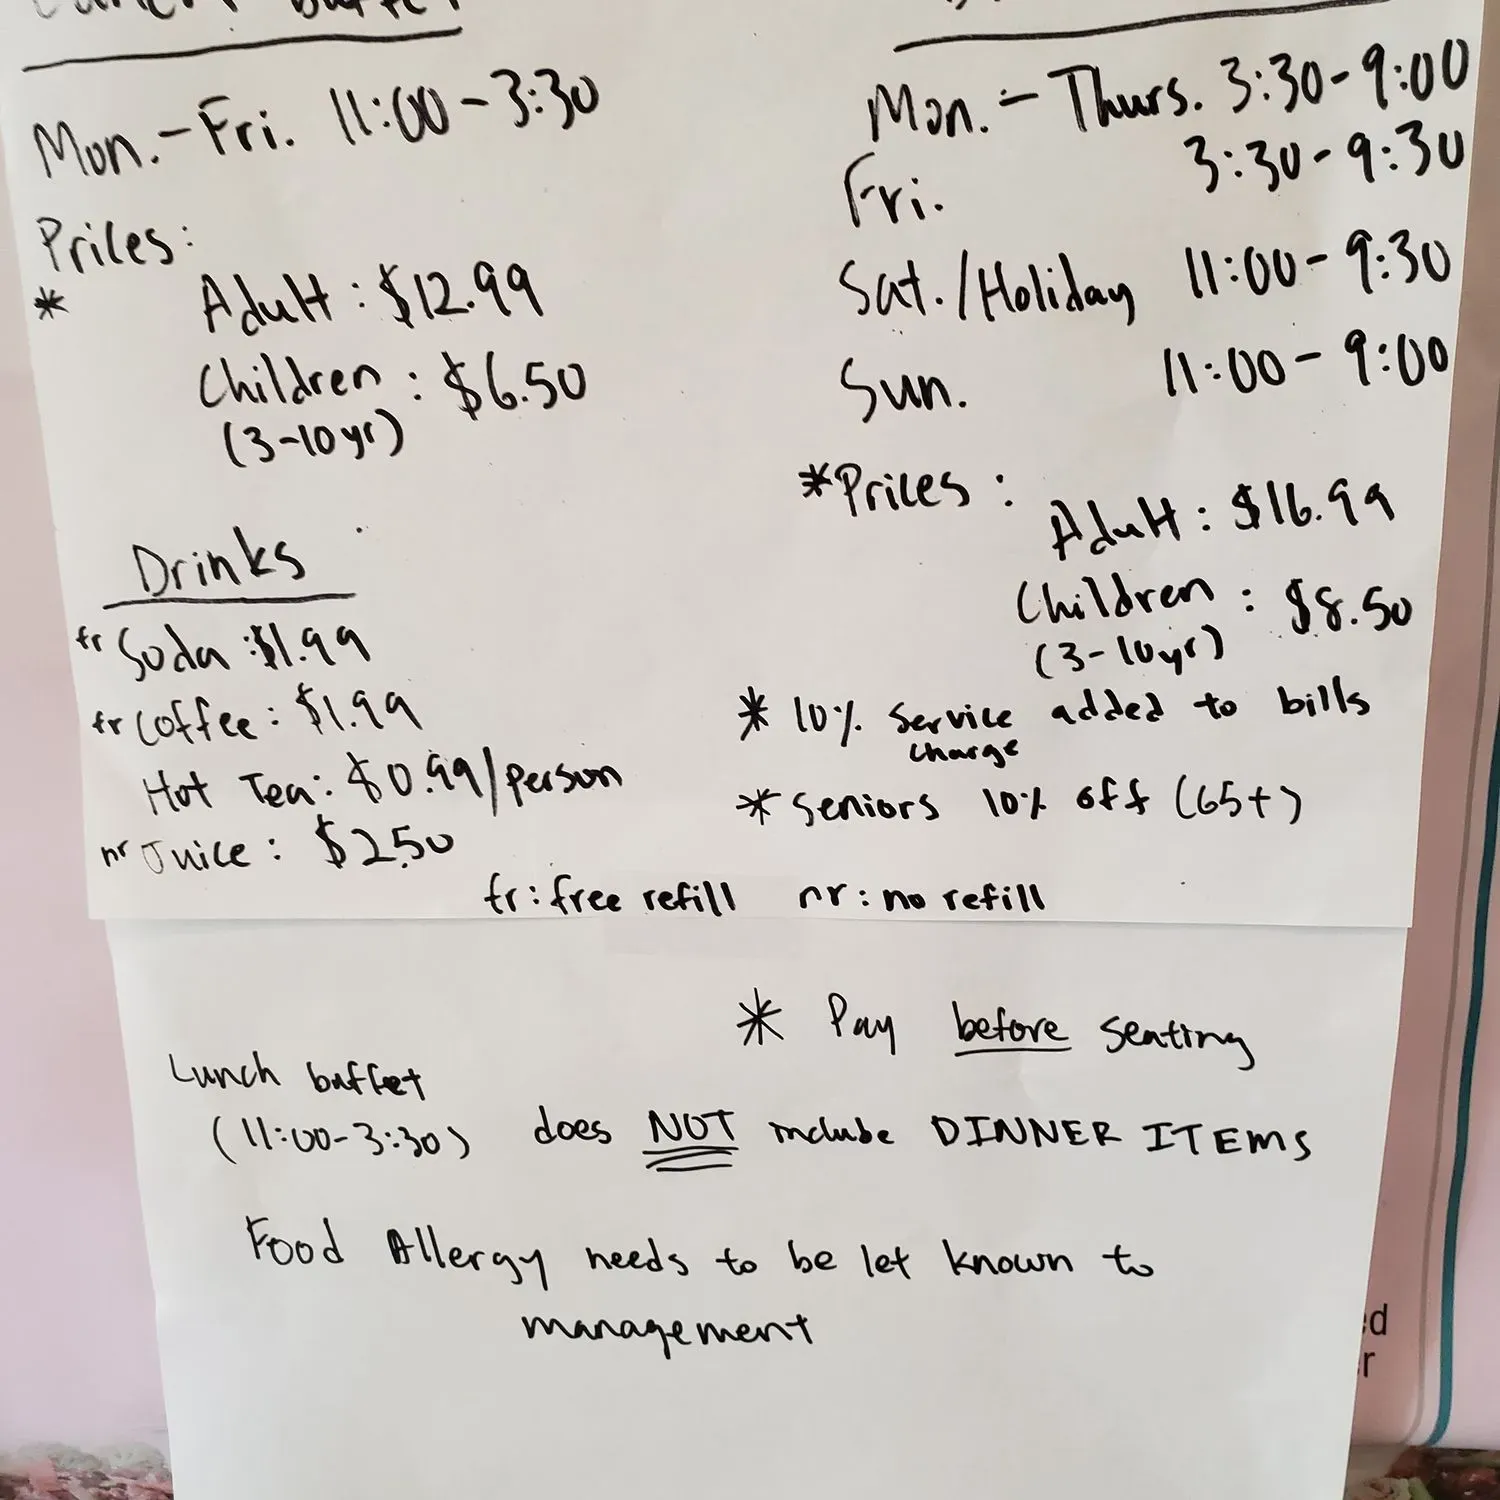 Lunch buffet
Mon.-Fri. 11:00-3:30
Prices:
* Adult: $12.99
Children: $6.50
(3-10yr)
Drinks
fr Soda: $1.99
fr Coffee: $1.99
Hot Tea: $0.99/person
nr Juice: $2.50
Mon.-Thurs. 3:30-9:00
Fri. 3:30-9:30
Sat./Holiday 11:00-9:30
Sun. 11:00-9:00
*Prices:
Adult: $16.99
Children: $8.50
(3-10yr)
* 10% service added to bills
charge
* Seniors 10% off (65+)
fr: free refill nr: no refill
* Pay before seating
Lunch buffet
(11:00-3:30) does NOT include DINNER ITEMS
Food Allergy needs to be let known to
management
ed
r